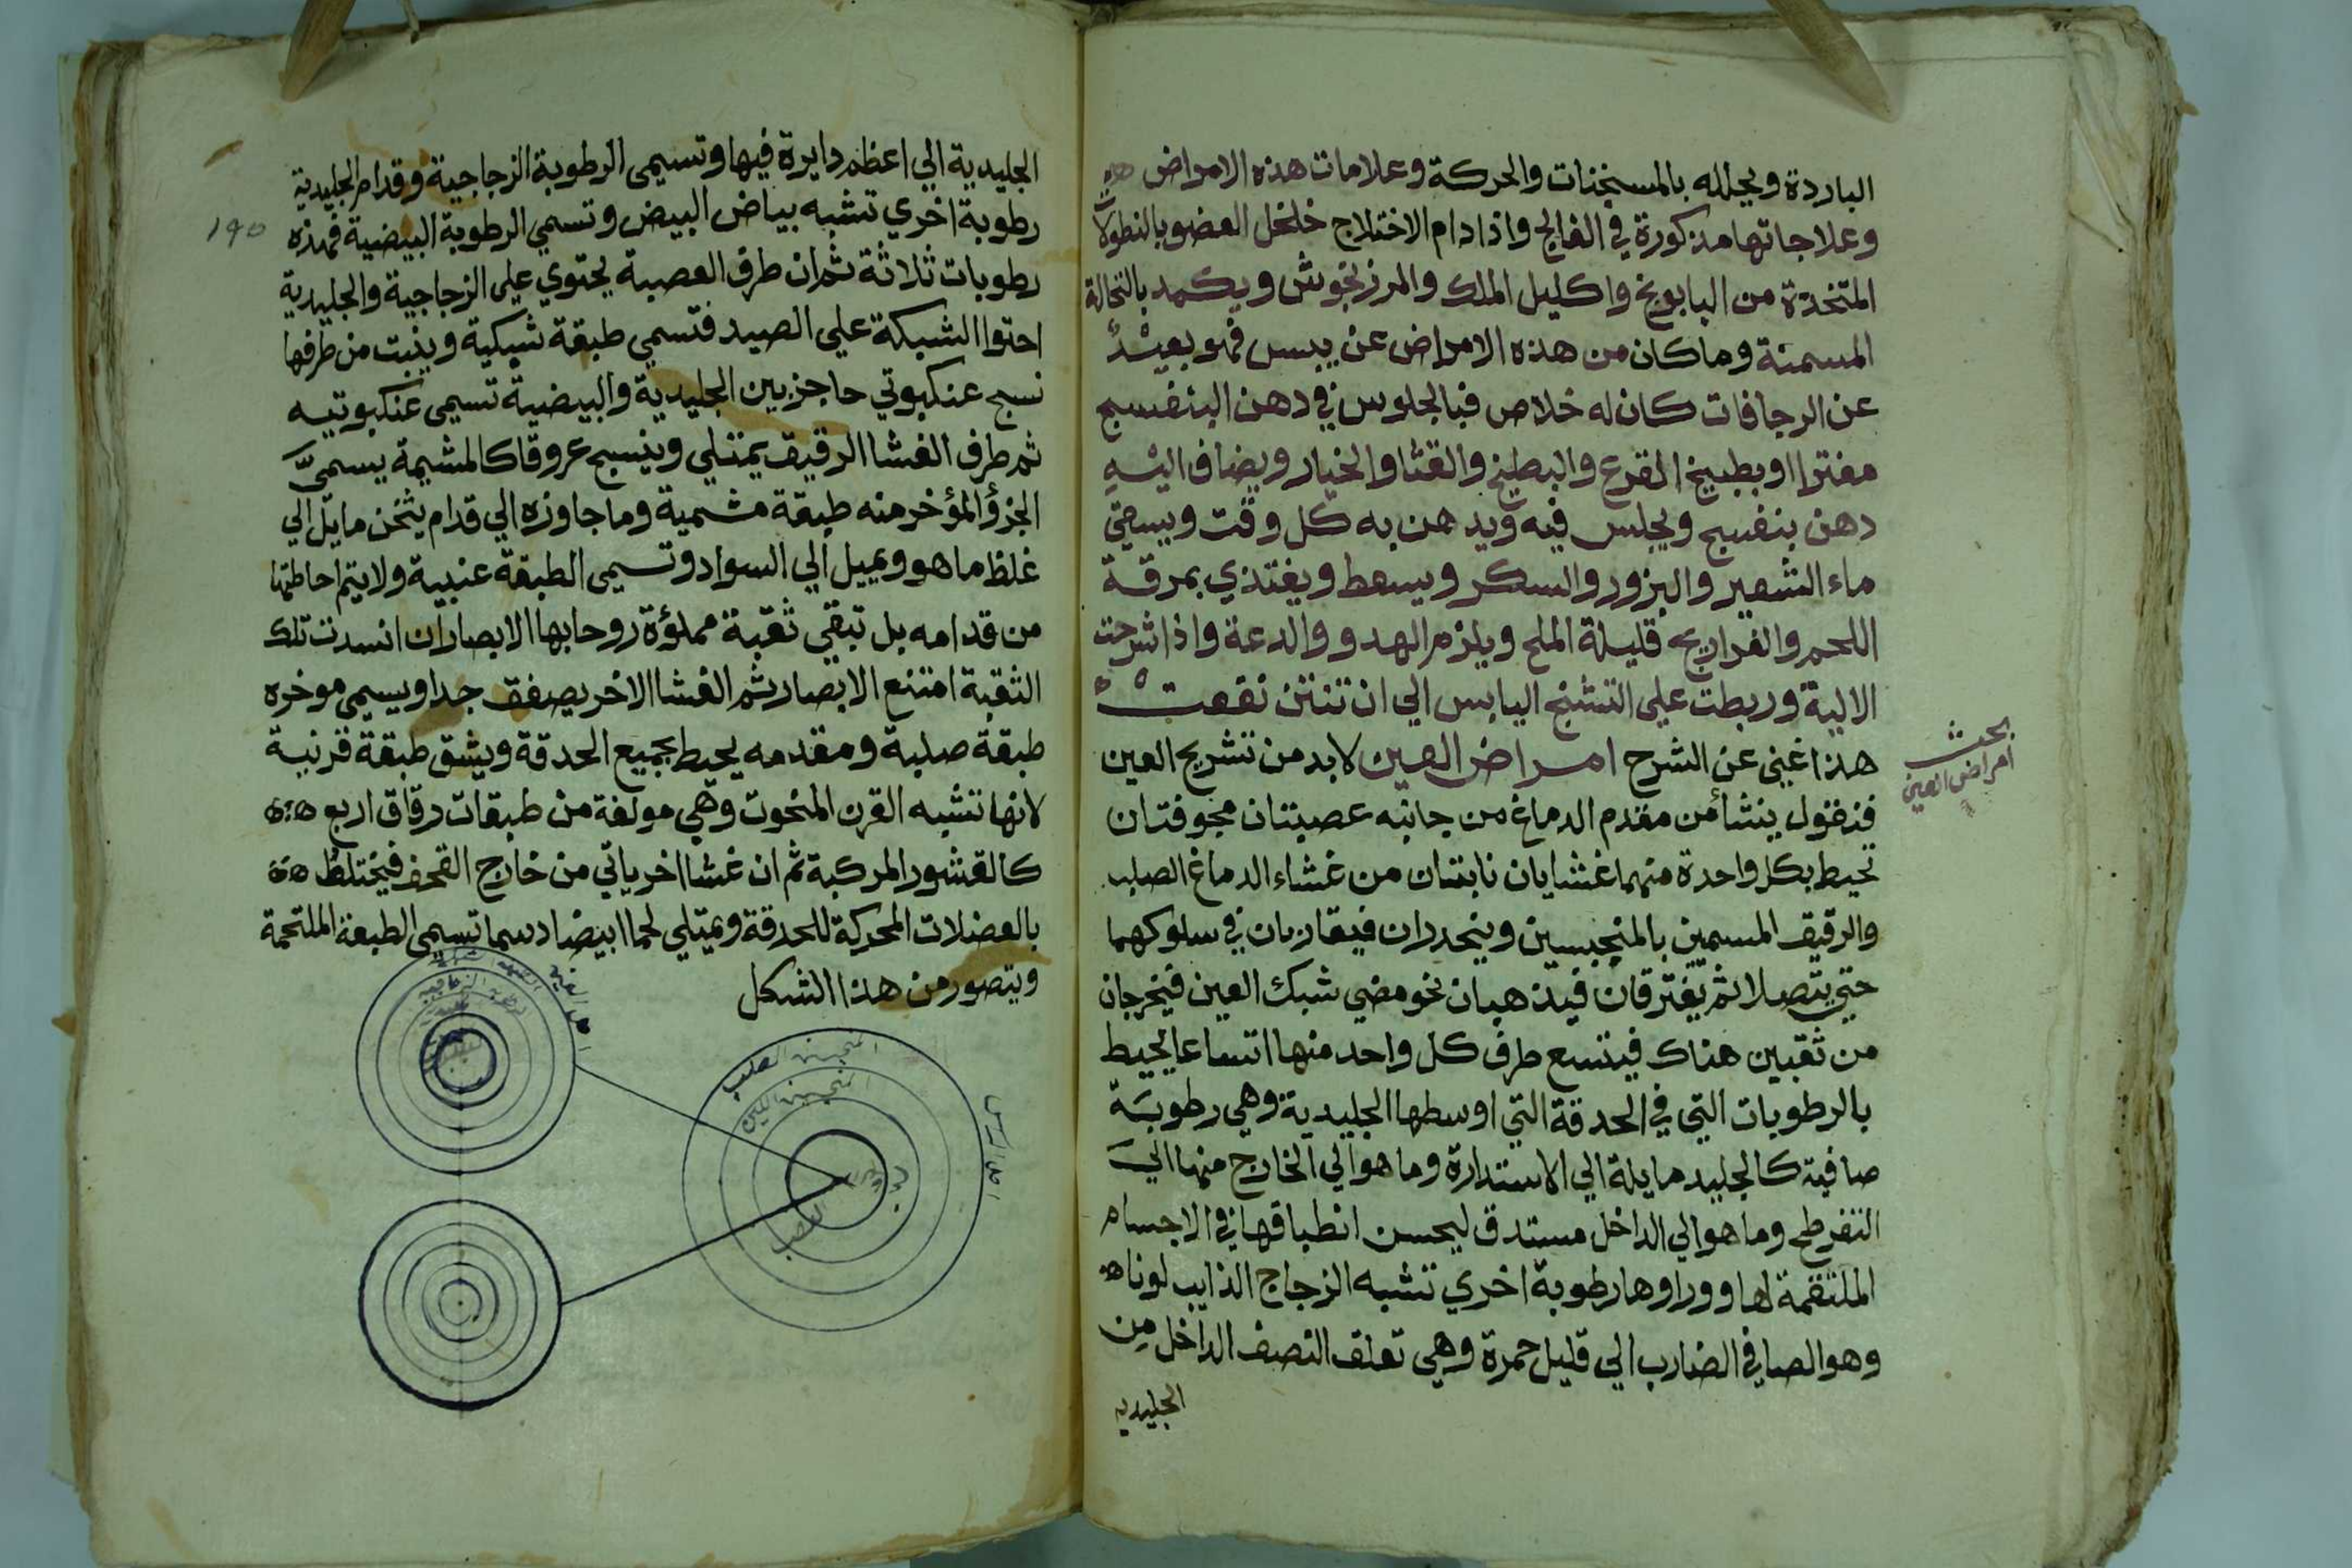 الباردة ويحلله بالمسخنات والحركة وعلامات هذه الامراض
وعلاجاتها مذكورة في الفالج واذا دام الاختلاج خلخل العضو بالنطولات
المتخذة من البابونج واكليل الملك والمرزنجوش ويكمد بالنخالة
المسخنة وما كان من هذه الامراض عن يبس فهو بعيد
عن الرجا فان كان له خلاص فبالجلوس في دهن البنفسج
مفترا او بطبيخ القرع والبطيخ والقثا والخيار ويضاف اليه
دهن بنفسج ويجلس فيه ويدهن به كل وقت ويسقي
ماء الشعير والبزور والسكر ويسعط ويغتذي بمرقة
اللحم والفراريج قليلة الملح ويلزم الهدو والدعة واذا شرحت
الالية وربطت علي التشنج اليابس الي ان تنتن نفعت
هذا غني عن الشرح امراض العين لابد من تشريح العين
بحث
امراض العين
فنقول ينشأ من مقدم الدماغ من جانبه عصبتان مجوفتان
تحيط بكل واحدة منهما غشايان نابتان من غشاء الدماغ الصلب
والرقيق المسمين بالمنجنسين وينحدران فيقاربان في سلوكهما
حتي يتصلا ثم يفترقان فيذهبان نحو مضي شبك العين فيخرجان
من ثقبين هناك فيتسع طرف كل واحد منها اتساعا يحيط
بالرطوبات التي في الحدقة التي اوسطها الجليدية وهي رطوبة
صافية كالجليد مايلة الي الاستدارة وما هو الي الخارج منها الي
التفرطح وما هو الي الداخل مستدق ليحسن انطباقها في الاجسام
الملتقمة لها وورا وها رطوبة اخري تشبه الزجاج الذايب لونا
وهو الصافي الضارب الي قليل حمرة وهي تعلق النصف الداخل من
الجليدية
الجليدية الي اعظم دايرة فيها وتسمى الرطوبة الزجاجية وقدام الجليدية
رطوبة اخري تشبه بياض البيض وتسمي الرطوبة البيضية فهذه
١٩٥
رطوبات ثلاثة ثم ان طرف العصبة يحتوي علي الزجاجية والجليدية
احتوا الشبكة علي الصيد فتسمي طبقة شبكية وينبت من طرفها
نسج عنكبوتي حاجز بين الجليدية والبيضية تسمى عنكبوتيه
ثم طرف الغشا الرقيق يمتلي وينسج عروقا كالمشيمة يسمى
الجزؤ المؤخر منه طبقة مشمية وما جاوزه الي قدام يثخن مايل الي
غلظ ما هو ويميل الي السواد وتسمى الطبقة عنبية ولا يتم احاطتها
من قدامه بل تبقي ثقبة مملؤة روحا بها الابصار ان انسدت تلك
الثقبة امتنع الابصار ثم الغشا الاخر يصفق جدا ويسمى موخره
طبقة صلبة ومقدمه يحيط بجميع الحدقة ويشق طبقة قرنية
لانها تشبه القرن المنحوت وهي مولفة من طبقات رقاق اربع
كالقشور المركبة ثم ان غشا اخر ياتي من خارج القحف فيختلط
بالعضلات المحركة للحدقة ويمتلي لحما ابيضا دسما تسمى الطبقة الملتحمة
ويتصور من هذا الشكل
الصلب
العصب